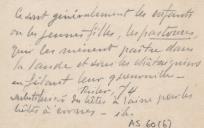 Ce sont généralement les enfants
ou les jeunes filles, les pastoures
qui les mènent paître dans
la lande et sous les châtaigniers
en filant leur quenouille —
74
bêtes à laine pour les
bêtes à cornes —
AS 60(6)